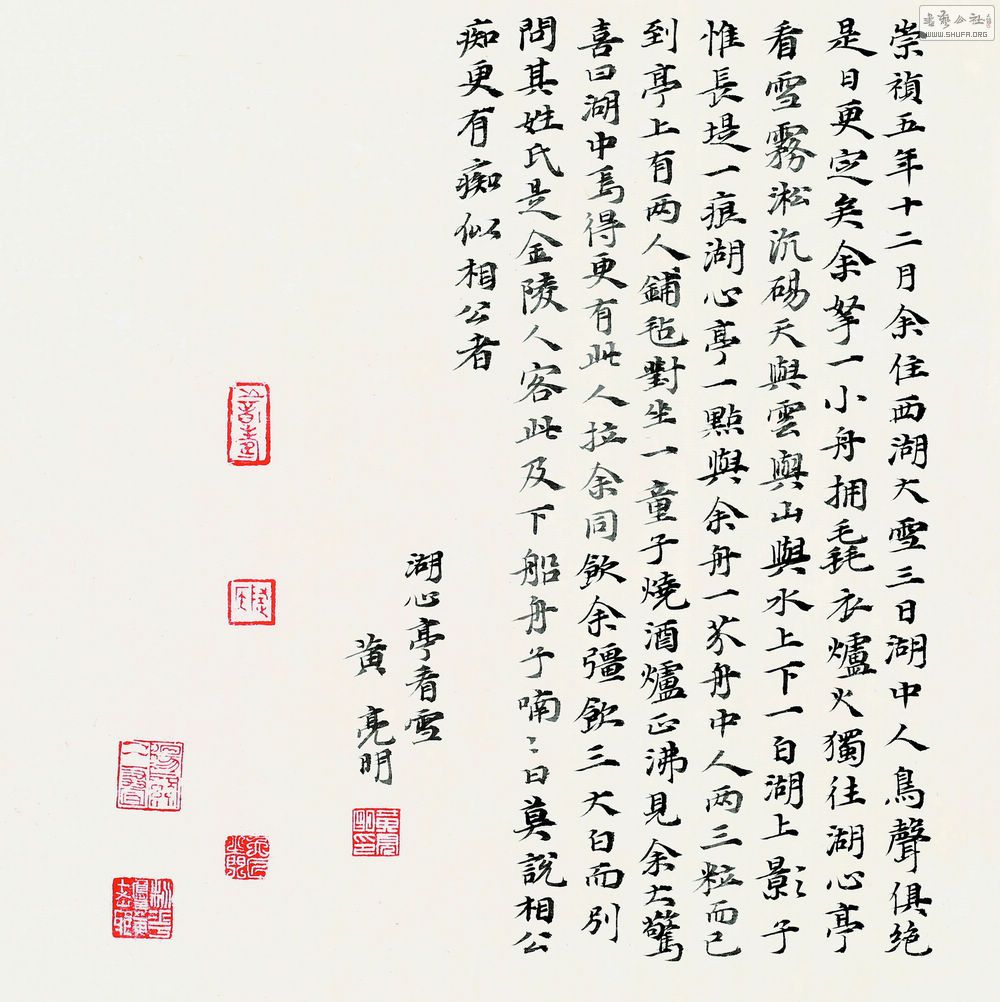 崇禎五年十二月余住西湖大雪三日湖中人鳥聲俱絕
是日更定矣余拏一小舟拥毳衣爐火獨往湖心亭
看雪霧淞沆碭天與雲與山與水上下一白湖上影子
惟長堤一痕湖心亭一點與余舟一芥舟中人两三粒而已
到亭上有两人鋪毡對坐一童子燒酒爐正沸見余大驚
喜曰湖中焉得更有此人拉余同飲余彊飲三大白而別
問其姓氏是金陵人客此及下船舟子喃〻曰莫說相公
痴更有痴似相公者
湖心亭看雪
黄亮明
黄亮明印
WWW.SHUFA.ORG